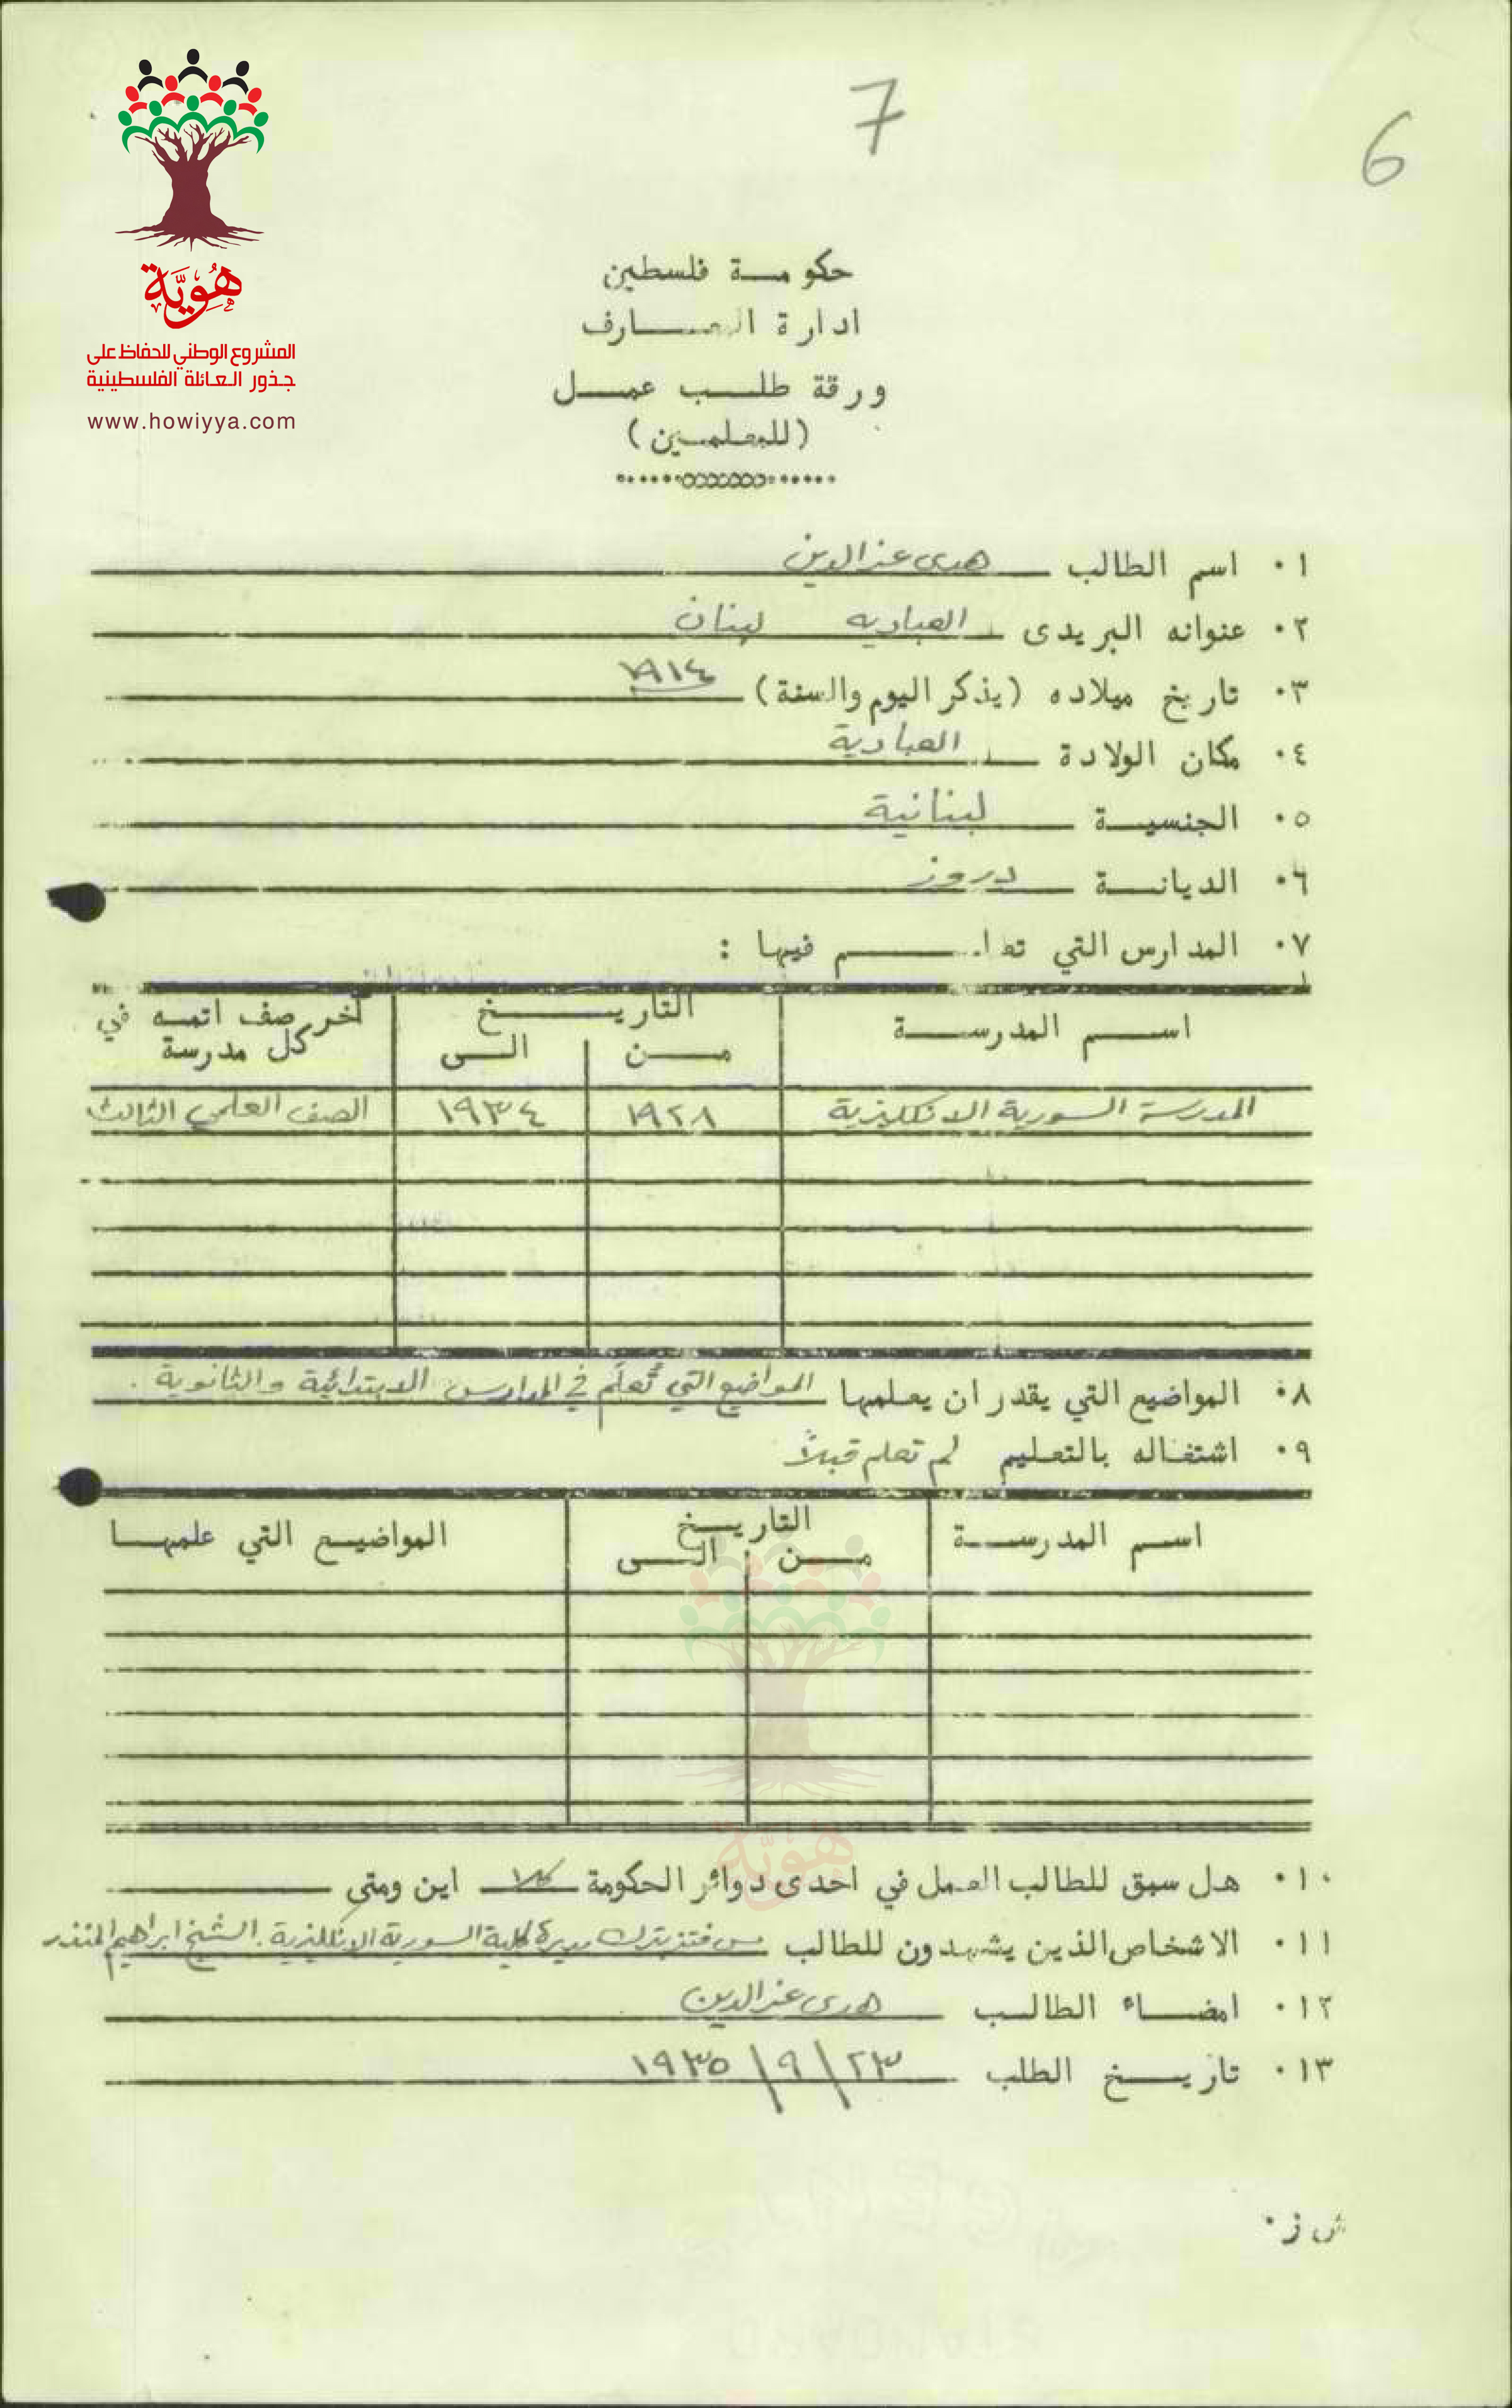 7
6
هُوِيَّة
المشروع الوطني للحفاظ على
جذور العائلة الفلسطينية
www.howiyya.com
حكومة فلسطين
ادارة المعارف
ورقة طلب عمل
(للمعلمين)
١٠ اسم الطالب هدى عز الدين
٢٠ عنوانه البريدى العباديه لبنان
٣٠ تاريخ ميلاده (يذكر اليوم والسنة) ١٩١٤
٤٠ مكان الولادة العبادية
٥٠ الجنسية لبنانية
٦٠ الديانة دروز
٧٠ المدارس التي فيها :
اسم المدرسة التاريخ آخر صف اتمه في
من الى كل مدرسة
المدرسة السورية الانكليزية ١٩٢٨ ١٩٣٤ الصف العلمي الثالث
٨٠ المواضيع التي يقدر ان يعلمها المواضيع التي تُعلَّم في المدارس الابتدائية والثانوية .
٩٠ اشتغاله بالتعليم لم تعلم قبلاً
اسم المدرسة التاريخ المواضيع التي علمها
من الى
هُوِيَّة
١٠٠ هل سبق للطالب العمل في احدى دوائر الحكومة كلا اين ومتى
١١٠ الاشخاص الذين يشهدون للطالب مس مديرة الكلية السورية الانكليزية . الشيخ ابراهيم المنذر
١٢٠ امضاء الطالب هدى عز الدين
١٣٠ تاريخ الطلب ٢٣/٩/١٩٣٥
ش ز٠